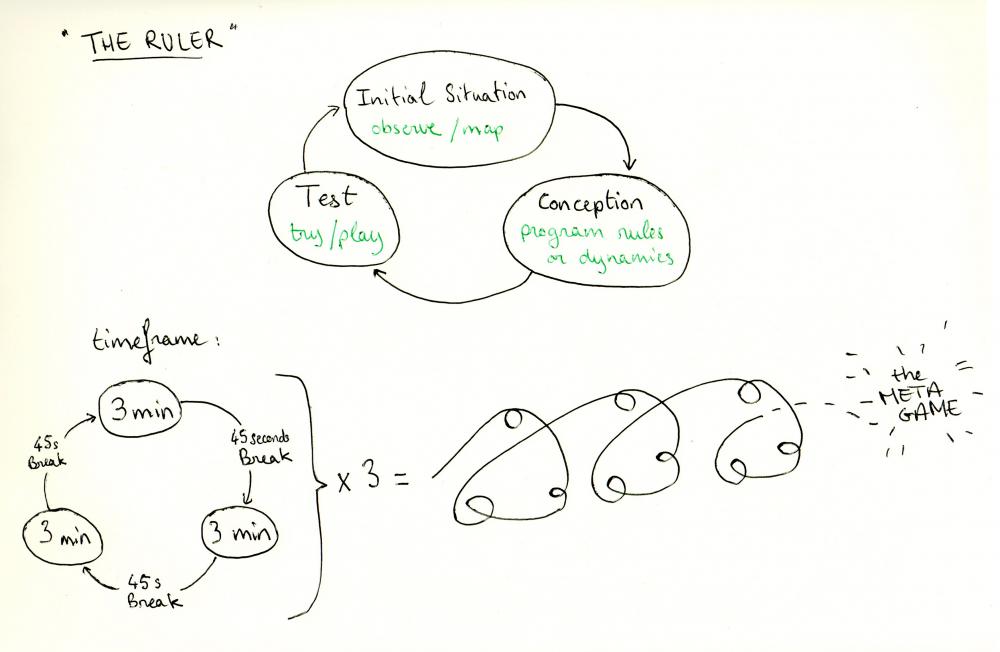 "THE RULER"
Initial Situation
observe / map
Test
try / play
Conception
program rules
or dynamics
timeframe :
3 min
45s
Break
45 seconds
Break
3 min
3 min
45s
Break
x 3 =
the
META
GAME